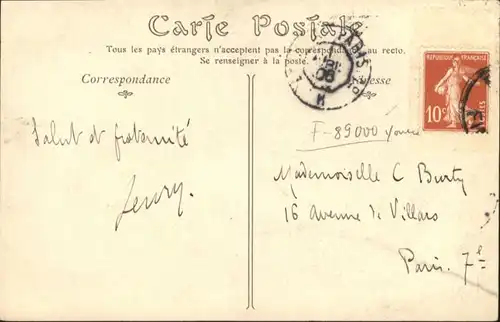 Carte Postale
Tous les pays étrangers n'acceptent pas la correspondance au recto.
Se renseigner à la poste.
Correspondance
Adresse
PARIS
06
RÉPUBLIQUE FRANÇAISE
10c
POSTES
F-89000
Salut et fraternité
Mademoiselle C Burty
16 Avenue de Villars
Paris. 7e